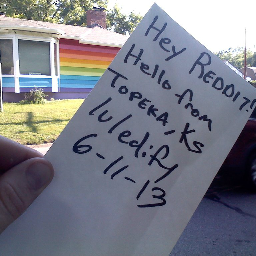 Hey REDDIT!!
Hello from
TOPEKA, KS
/u/edify
6-11-13